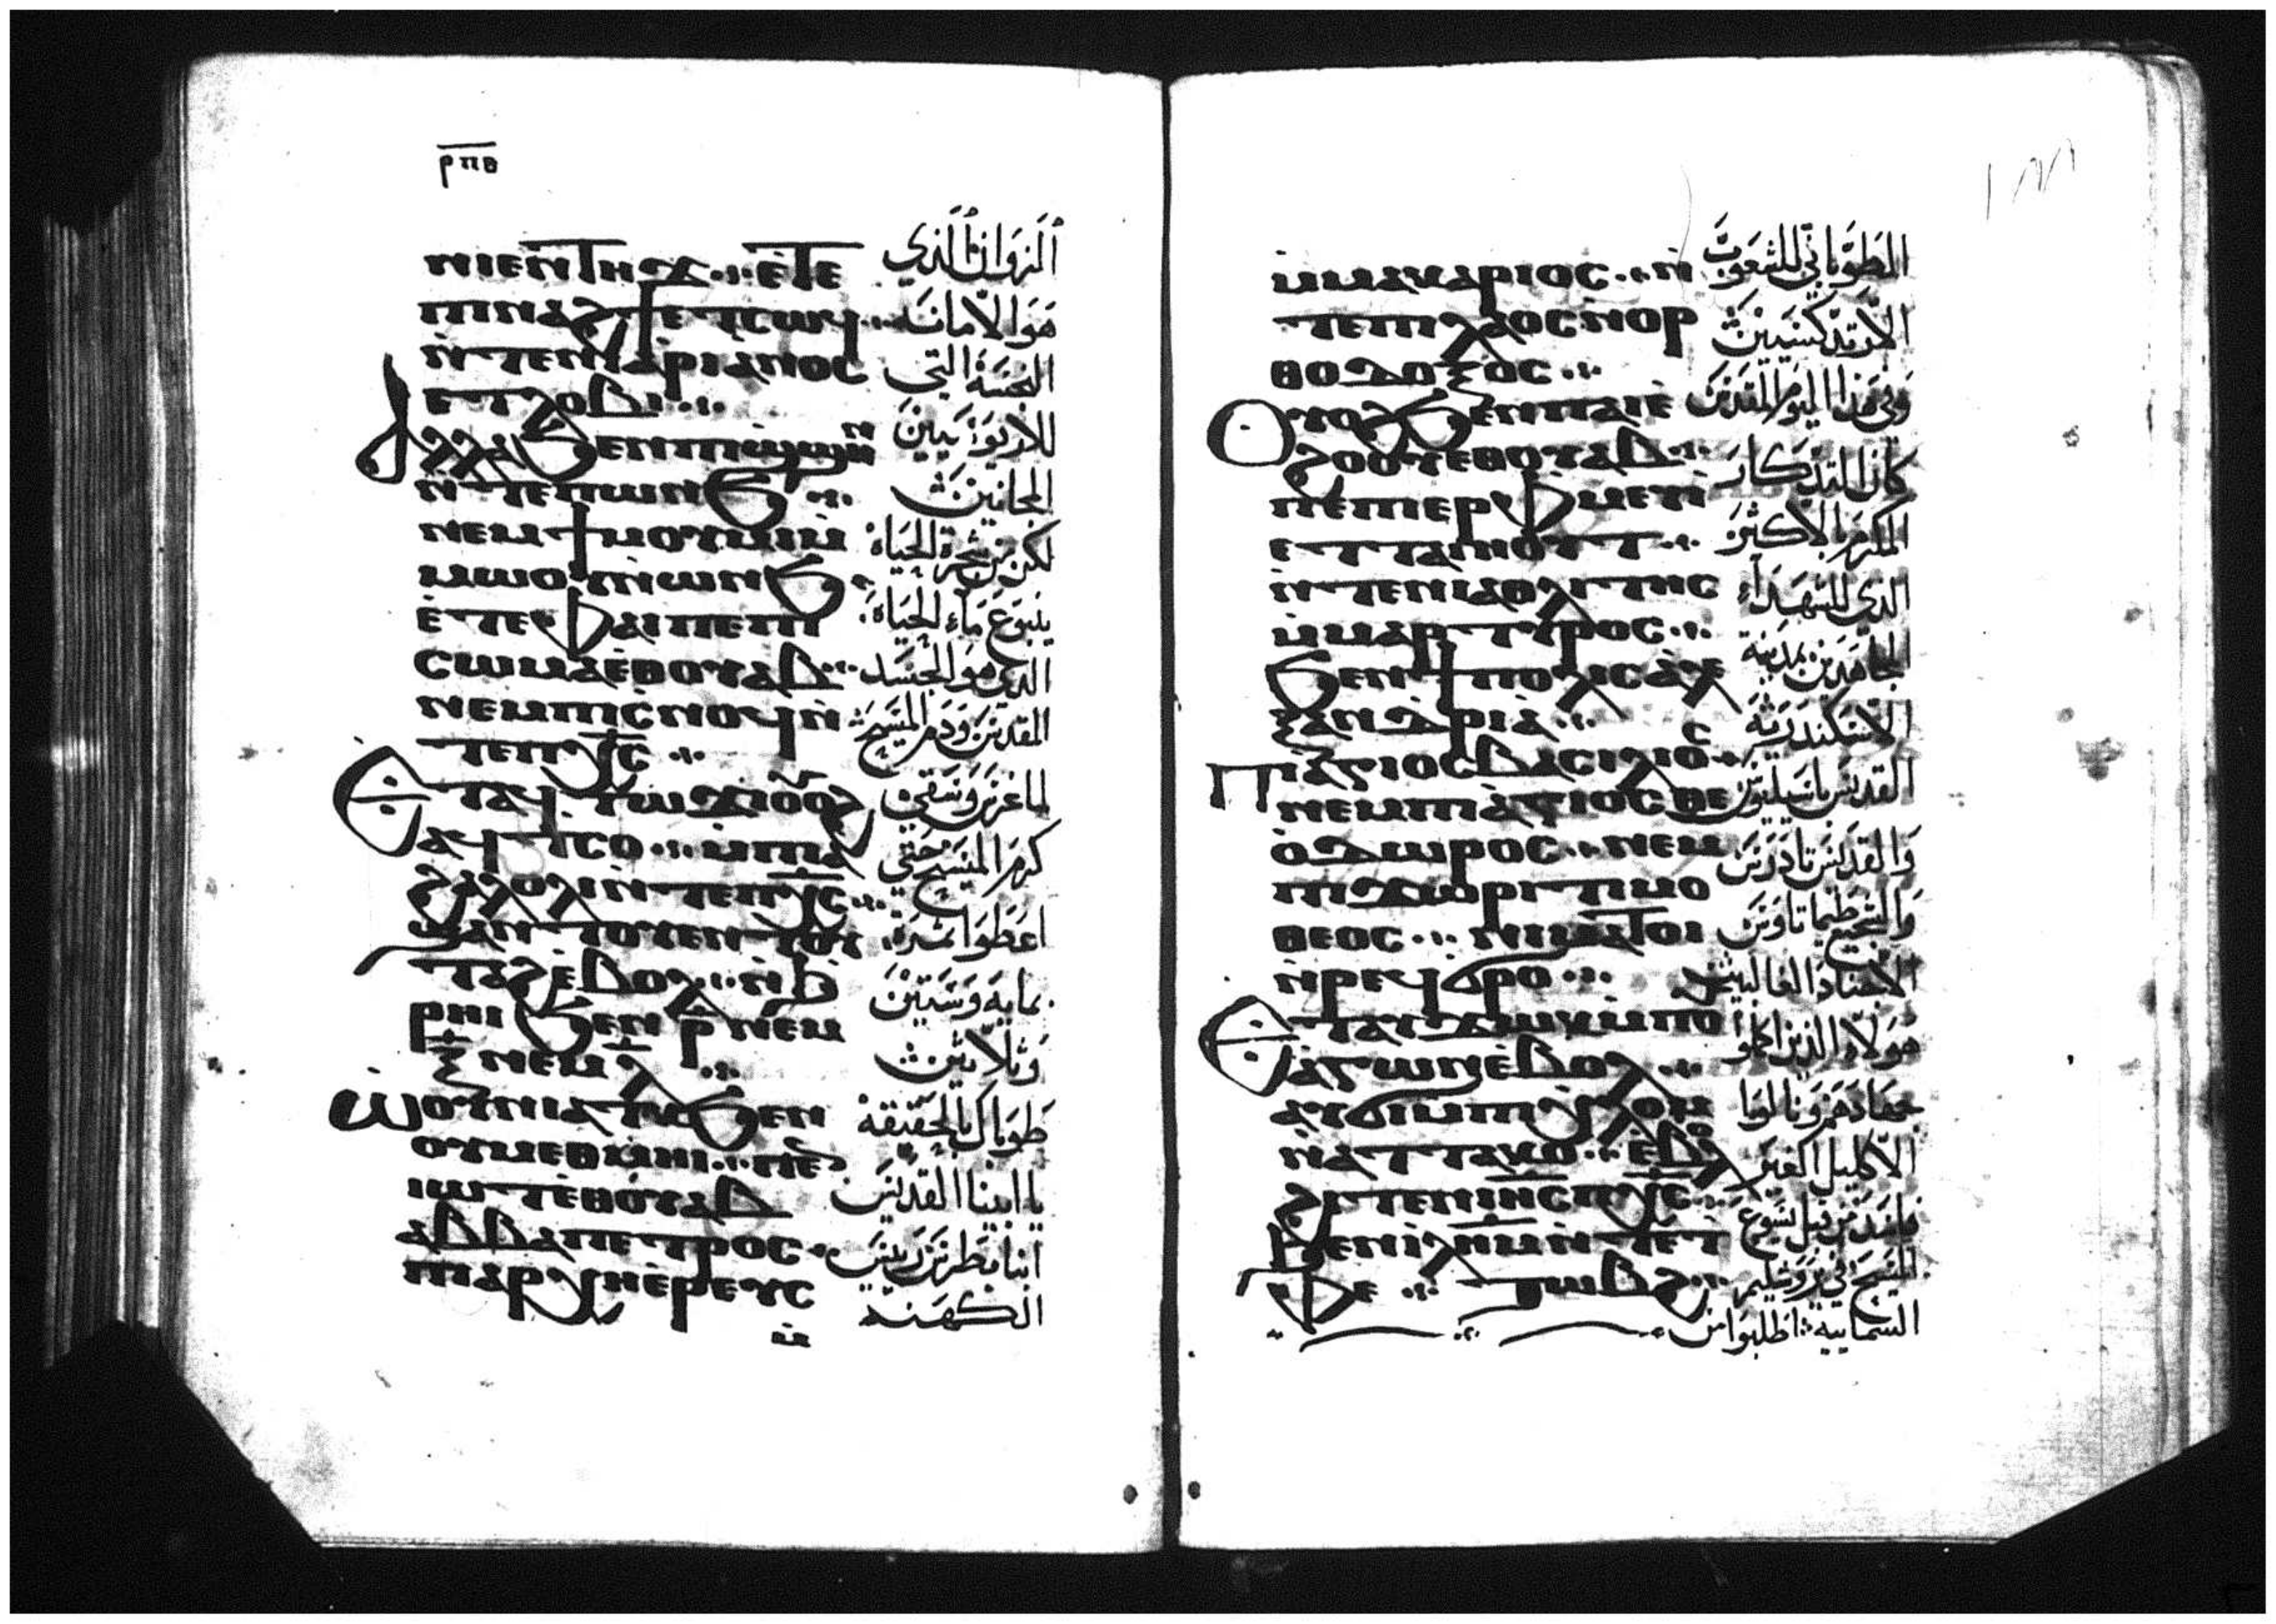 ⲣⲡⲑ
ⲛⲓⲉⲛϯⲏϫ ⲉⲧⲉ
ⲡⲓⲛⲁϩϯ ⲉⲧⲥⲱϥ
ⲛ̀ⲧⲉⲛⲓⲁⲣⲓⲁⲛⲟⲥ
ⲉⲧⲗⲟⲃⲓ
ⲁⲗⲗⲁ ϧⲉⲛⲡⲓϣ̀ϣⲏⲛ
ⲛ̀ⲧⲉⲡⲱⲛϧ
ⲛⲉⲙϯⲙⲟⲩⲙⲓⲙ̀
ⲙⲱⲟⲩⲛ̀ⲱⲛϧ
ⲉ̀ⲧⲉⲫⲁⲓⲡⲉⲡⲓ
ⲥⲱⲙⲁⲉ̀ⲑⲟⲩⲁⲃ
ⲛⲉⲙⲡⲓⲥ̀ⲛⲟϥⲛ̀
ⲧⲉⲡⲭⲥ
ⲉⲧⲁϥⲧⲱϫⲓⲟⲩⲟϩ
ⲁϥⲧⲥⲟ ⲙ̀ⲡⲓⲁ
ϩⲁⲗⲟⲗⲓⲛ̀ⲧⲉⲡⲭⲥ
ϣⲁⲛⲧⲟⲩⲉⲛⲧⲟⲩ
ⲧⲁϩⲉ̀ⲃⲟⲗ ⲛ̀ϩ̀
ⲣⲏⲓ ϧⲉⲛ ⲣ̄ ⲛⲉⲙ
ⲝ̄ ⲛⲉⲙ ⲗ̄
ⲱⲟⲩⲛⲓⲁⲧⲕ ϧⲉⲛ
ⲟⲩⲙⲉⲑⲙⲏⲓ ⲡⲉⲛ
ⲓⲱⲧⲉ̀ⲑⲟⲩⲁⲃ
ⲁⲃⲃⲁⲡⲉⲧⲣⲟⲥ
ⲡⲓⲁⲣⲭⲏⲉ̀ⲣⲉⲩⲥ
ⲙ̀
الزوان الذي
هو الامانه
النجسة التي
للاريوسيين
المجانين
لكن من شجرة الحياة
ينبوع ماء الحياة
الذي هو الجسد
المقدس ودم المسيح
لما غرس وسقي
كرم المسيح حتي
اعطوا ثمرة
بمايه وستين
وثلاثين
طوباك بالحقيقة
يا ابينا القديس
انبا بطرس ريس
الكهنه
ⲙ̀ⲙⲁⲕⲁⲣⲓⲟⲥ ⲛ̀
ⲧⲉⲡⲓⲗⲁⲟⲥⲛⲟⲣ
ⲑⲟⲇⲟⲝⲟⲥ
ⲟⲩⲟϩ ϧⲉⲛⲡⲁⲓⲉ̀
ϩⲟⲟⲩⲉⲑⲟⲩⲁⲃ
ⲛⲉ̀ⲡⲉⲣⲫⲙⲉⲩⲓ̀
ⲉⲧⲧⲁⲓⲏⲟⲩⲧ
ⲛ̀ⲧⲉⲛⲓⲁⲑⲗⲓⲧⲏⲥ
ⲙ̀ⲙⲁⲣⲧⲩⲣⲟⲥ
ϧⲉⲛϯⲡⲟⲗⲓⲥⲁ̀ⲗⲉ
ⲝⲁⲛⲇⲣⲓⲁ
ⲡⲓⲁ̀ⲅⲓⲟⲥⲃⲁⲥⲓⲗⲓⲟⲥ
ⲛⲉⲙⲡⲓⲁ̀ⲅⲓⲟⲥ ⲑⲉ
ⲟ̀ⲇⲱⲣⲟⲥ ⲛⲉⲙ
ⲡⲓϫⲱⲣⲓ ⲧⲓⲙⲟ
ⲑⲉⲟⲥ ⲛⲓⲙⲁⲧⲟⲓ
ⲛ̀ⲣⲉϥϭⲣⲟ
ⲉⲧⲁⲩϫⲱⲕⲙ̀ⲡⲟⲩ
ⲁ̀ⲅⲱⲛⲉ̀ⲃⲟⲗ
ⲁⲩϭⲓⲙ̀ⲡⲓⲭⲗⲟⲙ
ⲛ̀ⲁⲧⲧⲁⲕⲟ ⲉⲃⲟⲗ
ϩⲓⲧⲉⲛⲓⲏⲥⲡⲭⲥ
ϧⲉⲛⲓ̀ⲗⲏⲙⲛ̀ⲧⲉⲧ
ⲫⲉ ⲧⲱⲃϩ
الطوباني للشعوب
الارتدكسيين
وفي هذا اليوم المقدس
كان التذكار
المكرم بالاكثر
الذي للشهداء
المجاهدين بمدينة
الاسكندرية
القديس باسيليوس
والقديس تادرس
والشجيع طيماتاوس
الاجناد الغالبين
هولاء الذين اكملوا
جهادهم ونالوا
الاكليل الغير
فاسد من قبل يسوع
المسيح في يروشليم
السماييه اطلبوا من